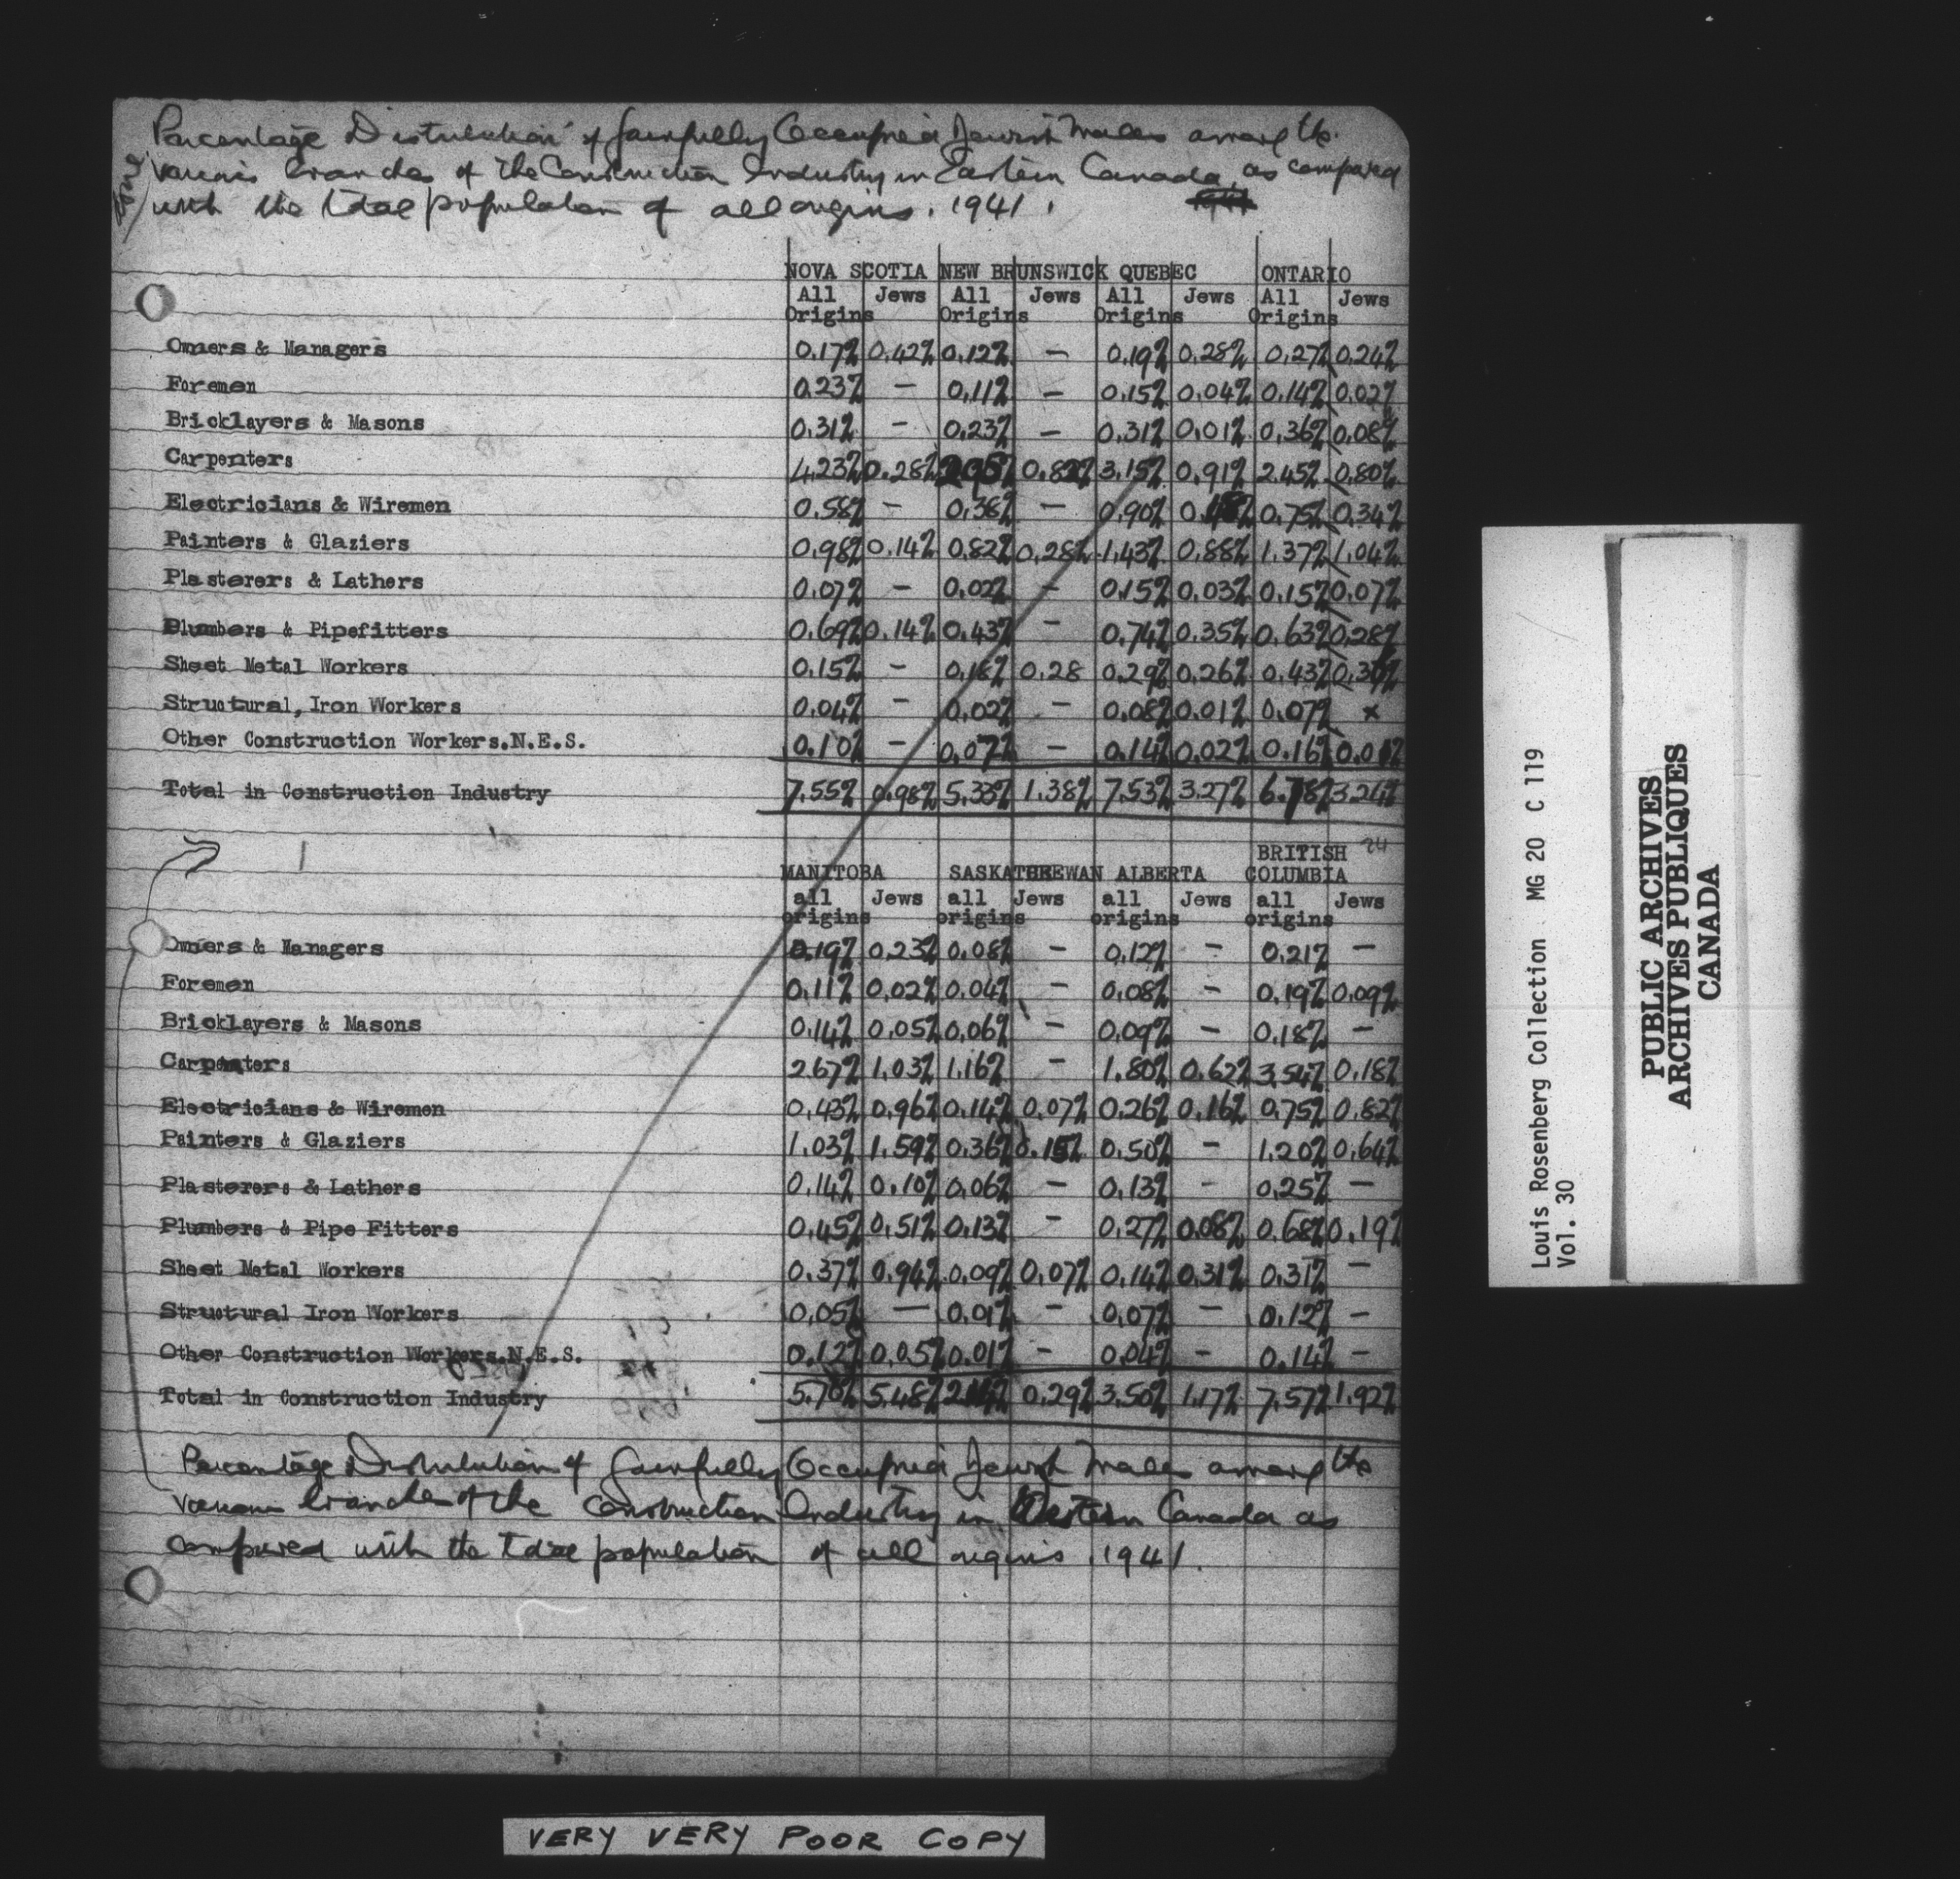 Percentage Distribution of Gainfully Occupied Jewish Males among the
various branches of the Construction Industry in Eastern Canada, as compared
with the total population of all origins. 1941.
NOVA SCOTIA NEW BRUNSWICK QUEBEC ONTARIO
All Jews All Jews All Jews All Jews
Origins Origins Origins Origins
Owners & Managers 0.17% 0.42% 0.12% - 0.19% 0.28% 0.27% 0.24%
Foremen 0.23% - 0.11% - 0.15% 0.04% 0.14% 0.02%
Bricklayers & Masons 0.31% - 0.23% - 0.31% 0.01% 0.36% 0.08%
Carpenters 4.23% 0.28% 0.82% 3.15% 0.91% 2.45% 0.80%
Electricians & Wiremen 0.58% - 0.38% - 0.90% 0.75% 0.34%
Painters & Glaziers 0.98% 0.14% 0.82% 0.28% 1.43% 0.88% 1.37% 1.04%
Plasterers & Lathers 0.07% - 0.02% - 0.15% 0.03% 0.15% 0.07%
Plumbers & Pipefitters 0.69% 0.14% 0.43% - 0.74% 0.35% 0.63% 0.28%
Sheet Metal Workers 0.15% - 0.18% 0.28 0.29% 0.26% 0.43%
Structural, Iron Workers 0.04% - 0.02% - 0.08% 0.01% 0.07% x
Other Construction Workers.N.E.S. 0.10% - 0.07% - 0.14% 0.02% 0.16%
Total in Construction Industry 7.55% 0.98% 5.33% 1.38% 7.53% 3.27% 6.78% 3.24%
BRITISH 24
MANITOBA SASKATCHEWAN ALBERTA COLUMBIA
all Jews all Jews all Jews all Jews
origins origins origins origins
Owners & Managers 0.19% 0.23% 0.08% - 0.12% - 0.21% -
Foremen 0.11% 0.02% 0.04% - 0.08% - 0.19% 0.09%
Bricklayers & Masons 0.14% 0.05% 0.06% - 0.09% - 0.18% -
Carpenters 2.67% 1.03% 1.16% - 1.80% 0.62% 3.54% 0.18%
Electricians & Wiremen 0.43% 0.96% 0.14% 0.07% 0.26% 0.16% 0.75% 0.82%
Painters & Glaziers 1.03% 1.59% 0.36% 0.15% 0.50% - 1.20% 0.64%
Plasterers & Lathers 0.14% 0.10% 0.06% - 0.13% - 0.25% -
Plumbers & Pipe Fitters 0.45% 0.51% 0.13% - 0.27% 0.08% 0.68% 0.19%
Sheet Metal Workers 0.37% 0.94% 0.09% 0.07% 0.14% 0.31% 0.31% -
Structural Iron Workers 0.05% - 0.01% - 0.07% - 0.12% -
Other Construction Workers.N.E.S. 0.12% 0.05% 0.01% - 0.04% - 0.14% -
Total in Construction Industry 5.70% 5.48% 0.29% 3.50% 1.17% 7.57% 1.92%
Percentage Distribution of Gainfully Occupied Jewish Males among the
various branches of the Construction Industry in Western Canada as
compared with the total population of all origins 1941.
VERY VERY POOR COPY
Louis Rosenberg Collection MG 20 C 119
Vol. 30
PUBLIC ARCHIVES
ARCHIVES PUBLIQUES
CANADA